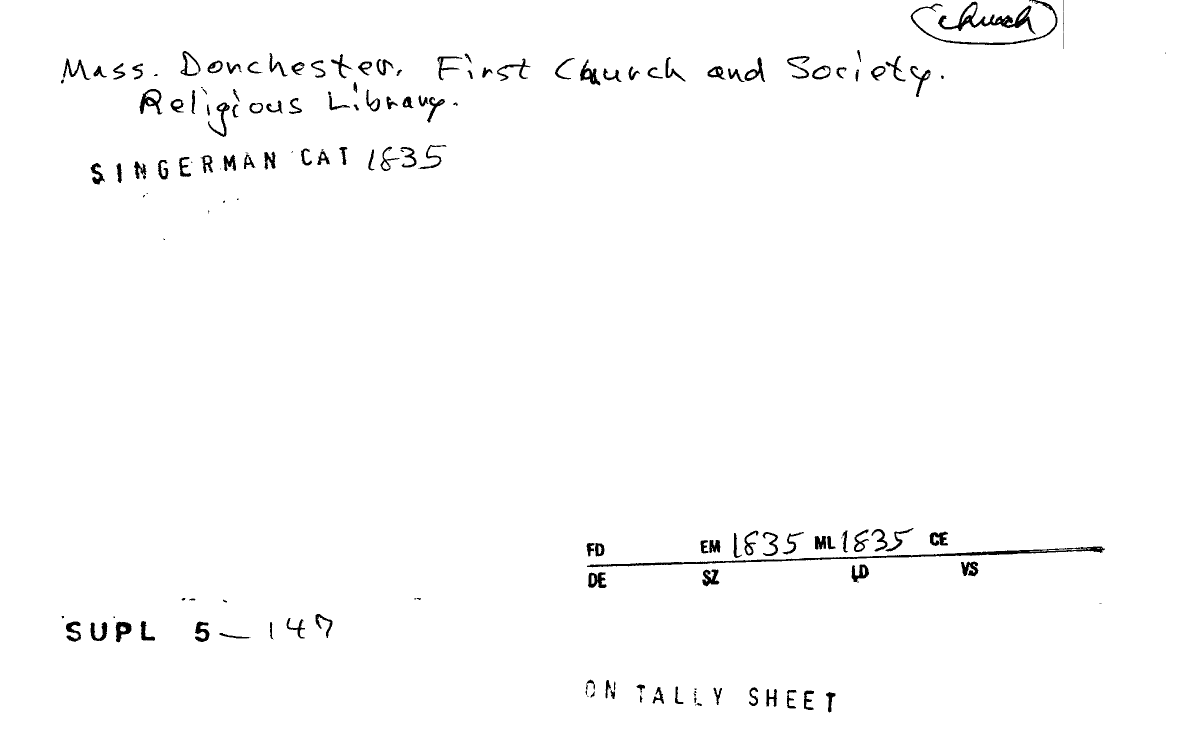 church
Mass. Dorchester. First Church and Society.
Religious Library.
SINGERMAN CAT 1835
FD EM 1835 ML 1835 CE
DE SZ LD VS
SUPL 5—147
ON TALLY SHEET